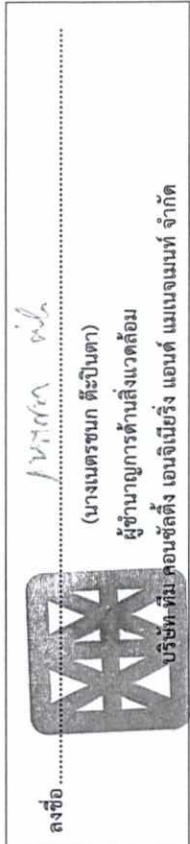 ลงชื่อ
(นางเนตรชนก ต๊ะปินตา)
ผู้ชำนาญการด้านสิ่งแวดล้อม
บริษัท ทีม คอนซัลติ้ง เอนจิเนียริ่ง แอนด์ แมเนจเมนท์ จำกัด